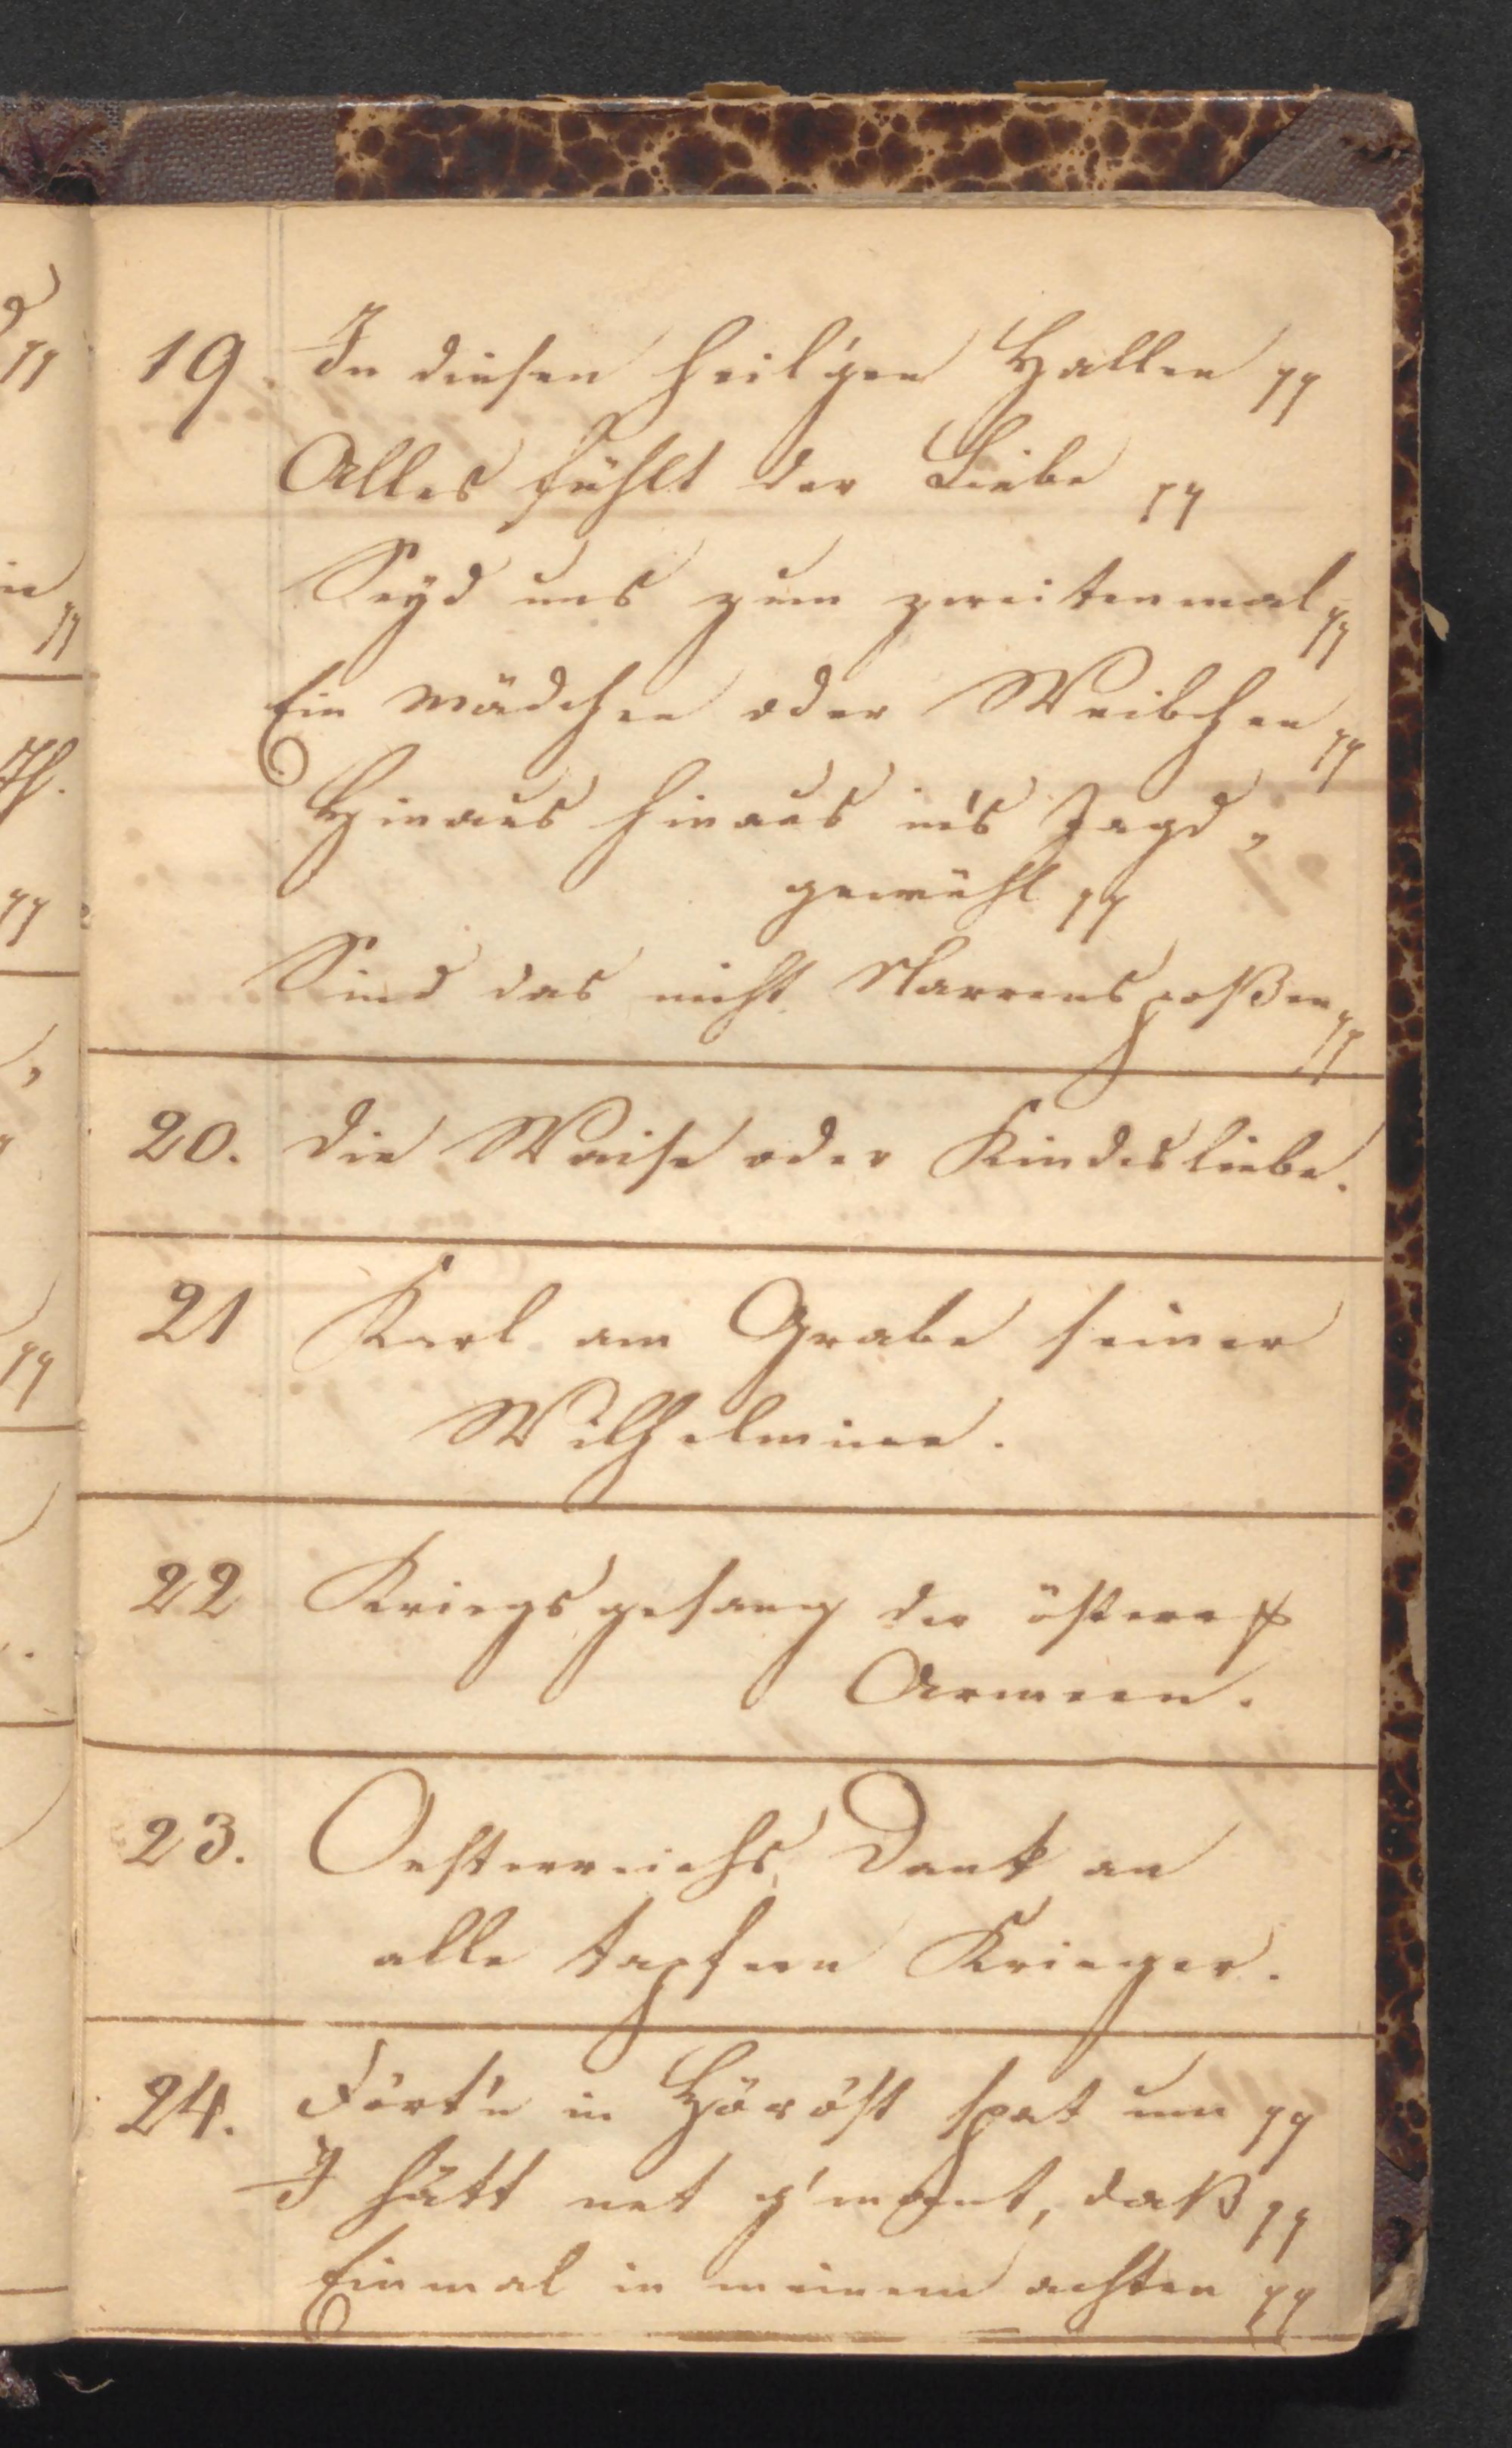 19. In diesen heil'gen Hallen pp
Alles fühlt der Liebe pp
Seyd uns zum zweitenmal pp
Ein Mädchen oder Weibchen pp
Hinaus hinaus in's Jagd-
gewühl pp
Sind das nicht Narrenspoßen pp
20. Die Waise oder Kindesliebe.
21 Karl am Grabe seiner
Wilhelmine.
22 Kriegsgesang der österr
Armeen.
23. Oesterreichs Dank an
alle tapfern Krieger.
24. in Höröst spat um pp
I hätt net g'mant, daß pp
Einmal in meinem achten pp